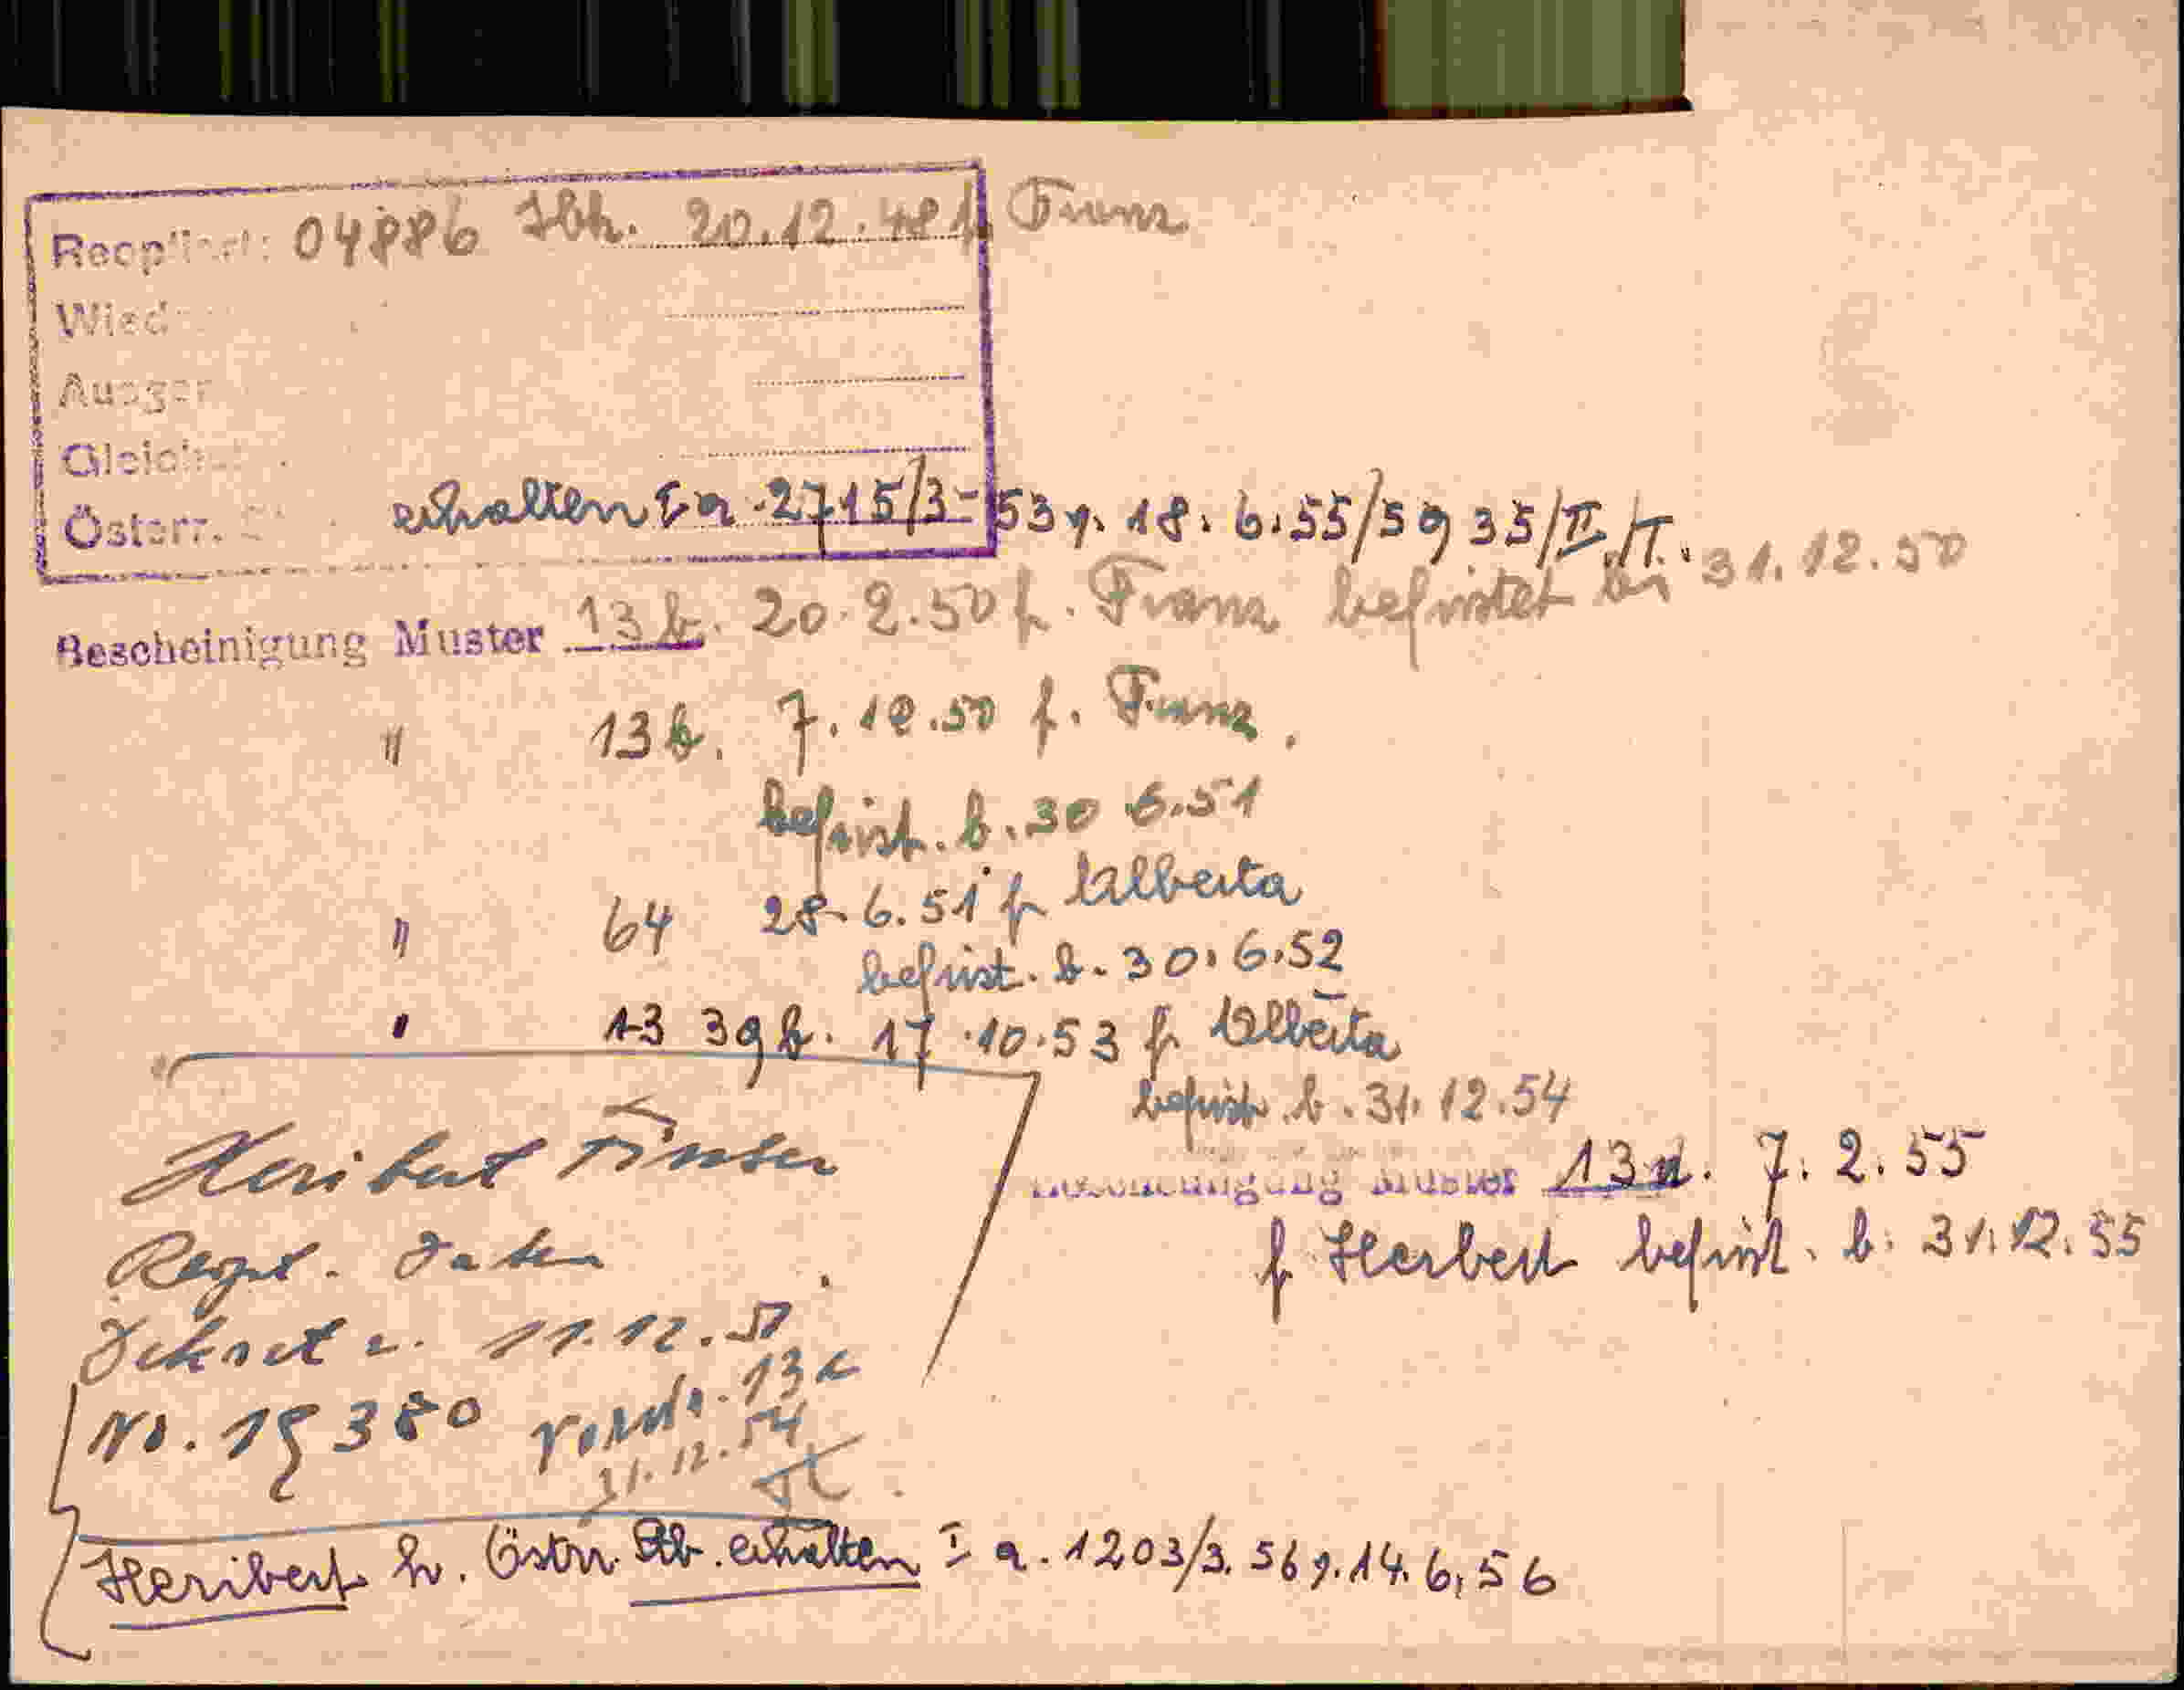 04886 Ibk. 20.12.48 f. Franz
Wied
Ausge
Gleich
Österr. erhalten Ia. 2715/3-53 v. 18. 6. 55/5935/II./T.
Bescheinigung Muster 13b. 20.2.50 f. Franz befristet bis 31.12.50
" 13b. 7.12.50 f. Franz.
befrist. b. 30 6.51
" 64 28.6.51 f. Alberta
befrist. b. 30.6.52
" 13 39b. 17.10.53 f. Alberta
befrist. b. 31.12.54
Muster 13a. 7. 2. 55
f. Herbert befrist. b. 31.12.55
Heribert
Dekret v. 11.12.
No. 19380 13a
31.12.54
Heribert h. Östrr. Stb. erhalten I a. 1203/3. 56 v. 14. 6. 56